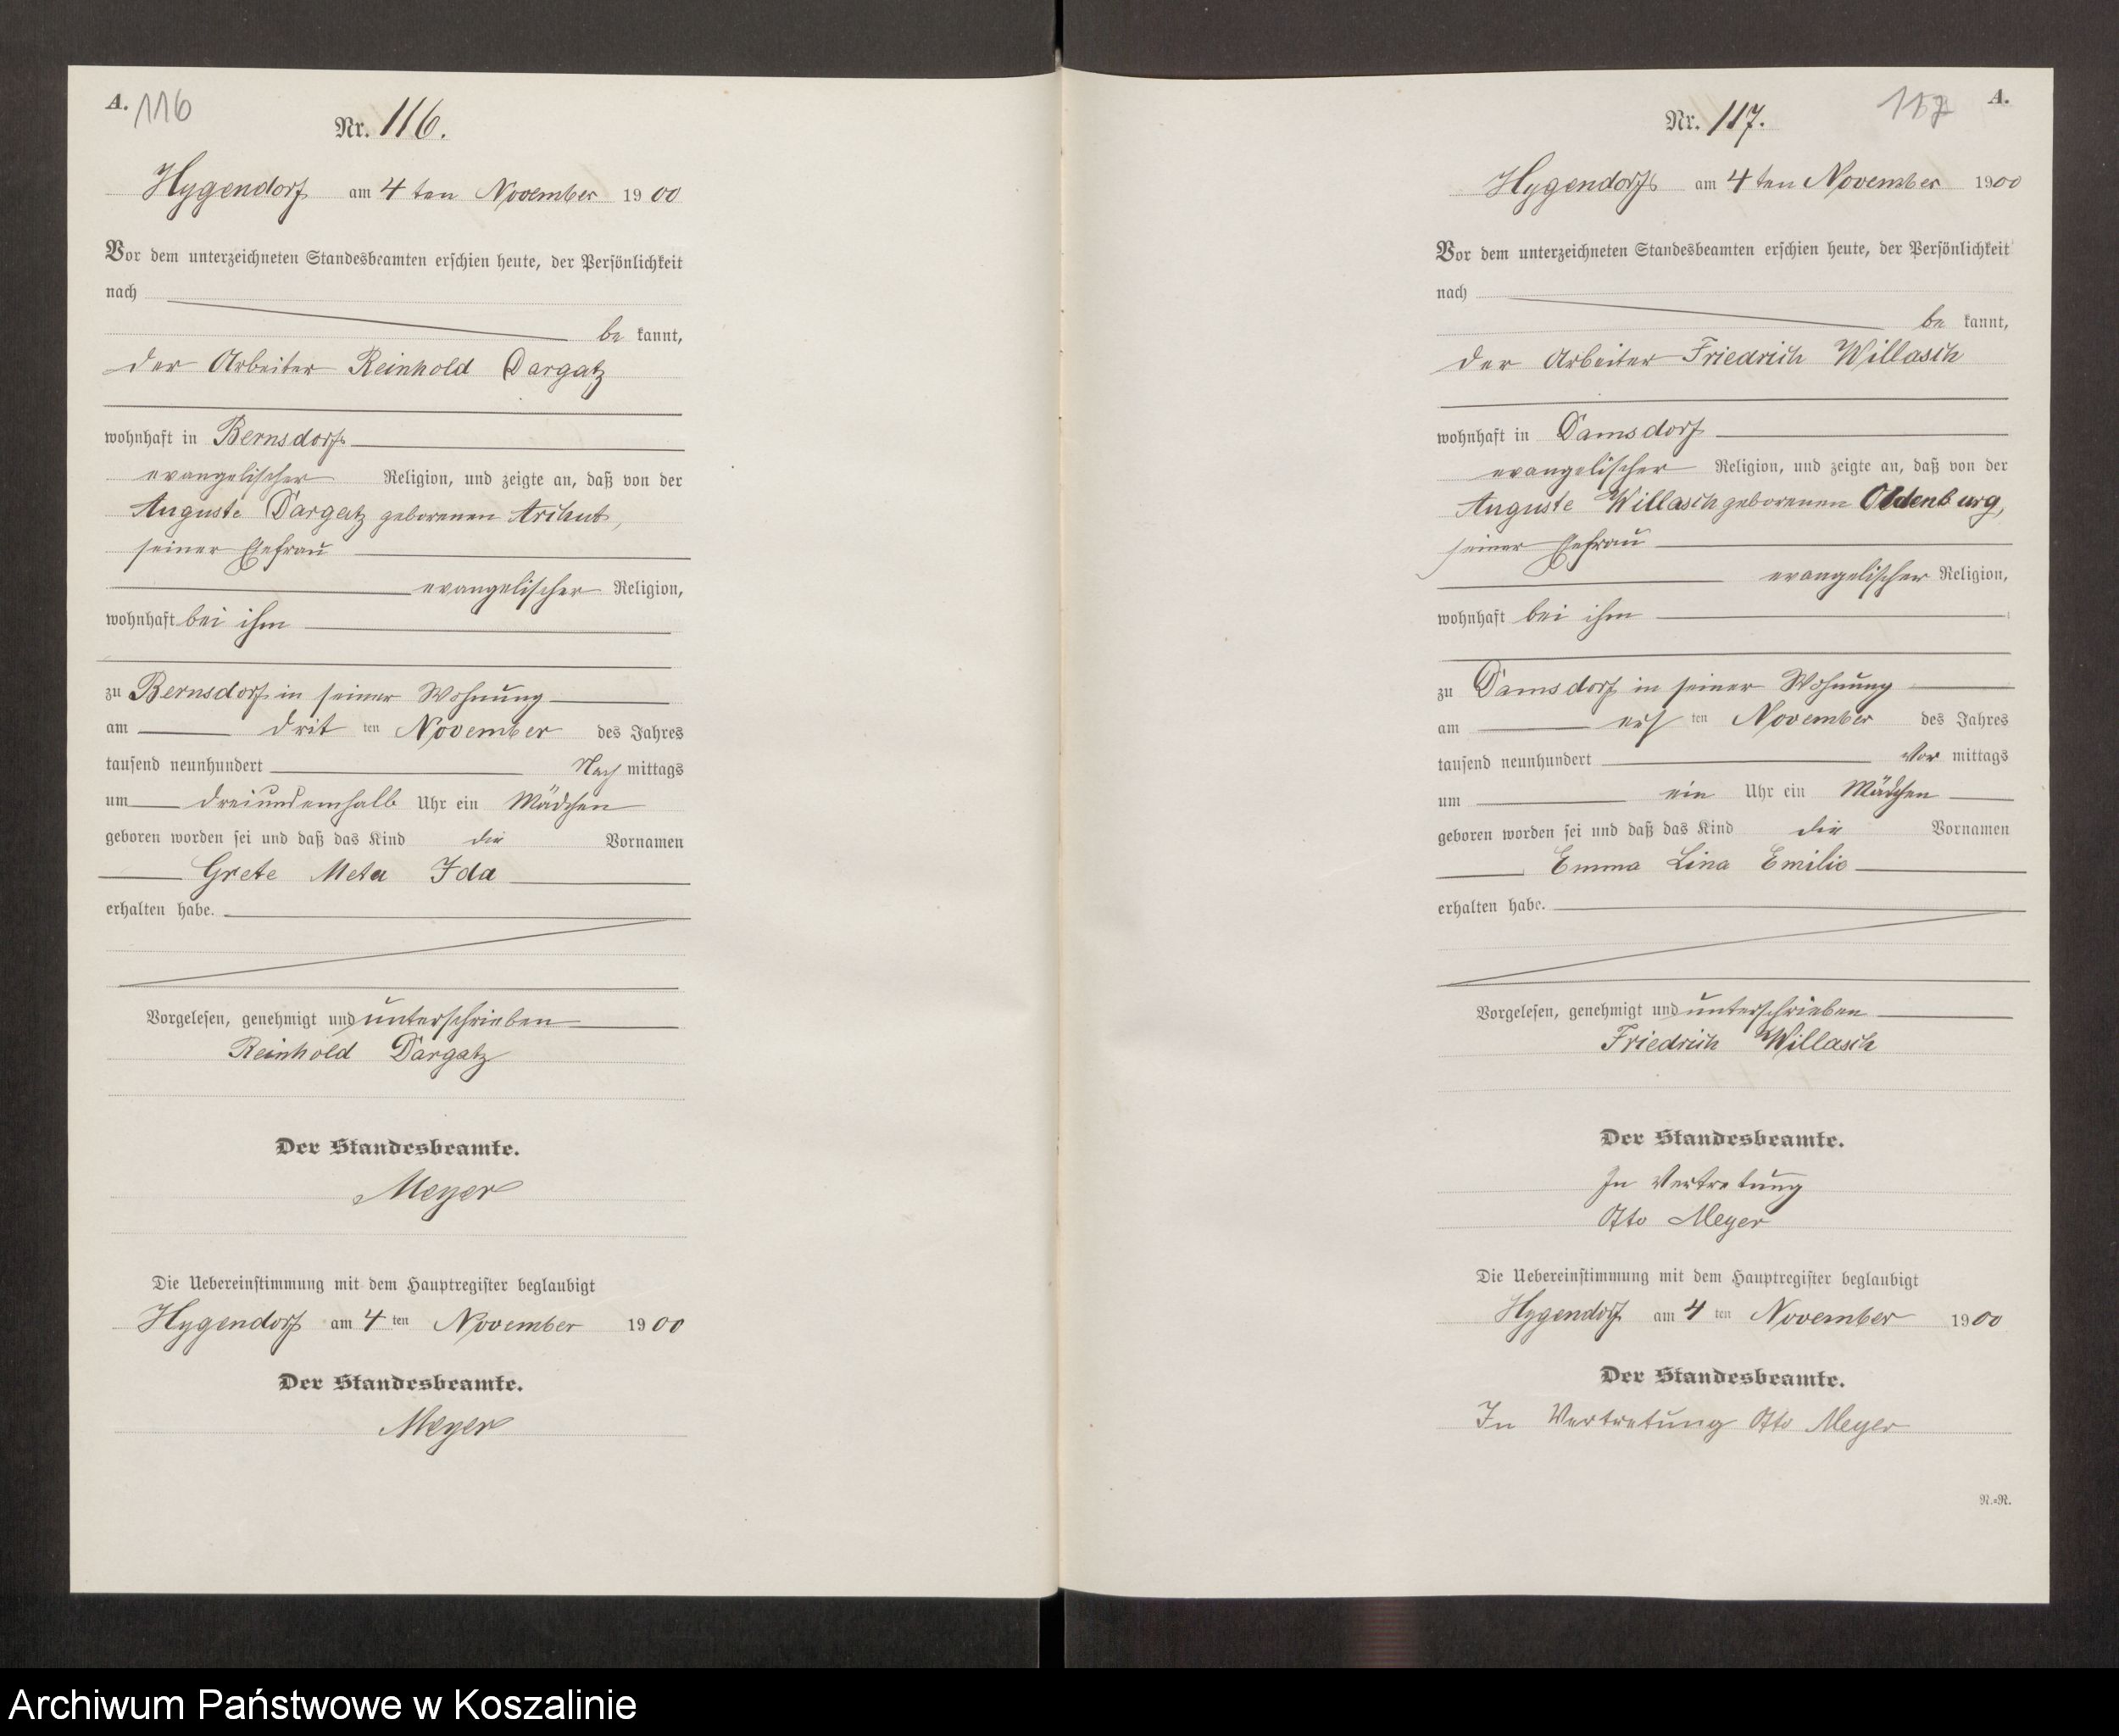 A. 116
Nr. 116.
Hygendorf am 4 ten November 1900
Vor dem unterzeichneten Standesbeamten erschien heute, der Persönlichkeit
nach
be kannt,
der Arbeiter Reinhold Dargatz
wohnhaft in Bernsdorf
evangelischer Religion, und zeigte an, daß von der
Auguste Dargatz geborenen
seiner Ehefrau
evangelischer Religion,
wohnhaft bei ihm
zu Bernsdorf in seiner Wohnung
am drit ten November des Jahres
tausend neunhundert Nach mittags
um dreiundeinhalb Uhr ein Mädchen
geboren worden sei und daß das Kind die Vornamen
Grete Meta Ida
erhalten habe.
Vorgelesen, genehmigt und unterschrieben
Reinhold Dargatz
Der Standesbeamte.
Meyer
Die Uebereinstimmung mit dem Hauptregister beglaubigt
Hygendorf am 4 ten November 1900
Der Standesbeamte.
Meyer
117 A.
Nr. 117.
Hygendorf am 4 ten November 1900
Vor dem unterzeichneten Standesbeamten erschien heute, der Persönlichkeit
nach
be kannt,
der Arbeiter Friedrich Willasch
wohnhaft in Damsdorf
evangelischer Religion, und zeigte an, daß von der
Auguste Willasch geborenen Oldenburg,
seiner Ehefrau
evangelischer Religion,
wohnhaft bei ihm
zu Damsdorf in seiner Wohnung
am ers ten November des Jahres
tausend neunhundert Vor mittags
um ein Uhr ein Mädchen
geboren worden sei und daß das Kind die Vornamen
Emma Lina Emilie
erhalten habe.
Vorgelesen, genehmigt und unterschrieben
Friedrich Willasch
Der Standesbeamte.
In Vertretung
Otto Meyer
Die Uebereinstimmung mit dem Hauptregister beglaubigt
Hygendorf am 4 ten November 1900
Der Standesbeamte.
In Vertretung Otto Meyer
N.=N.
Archiwum Państwowe w Koszalinie